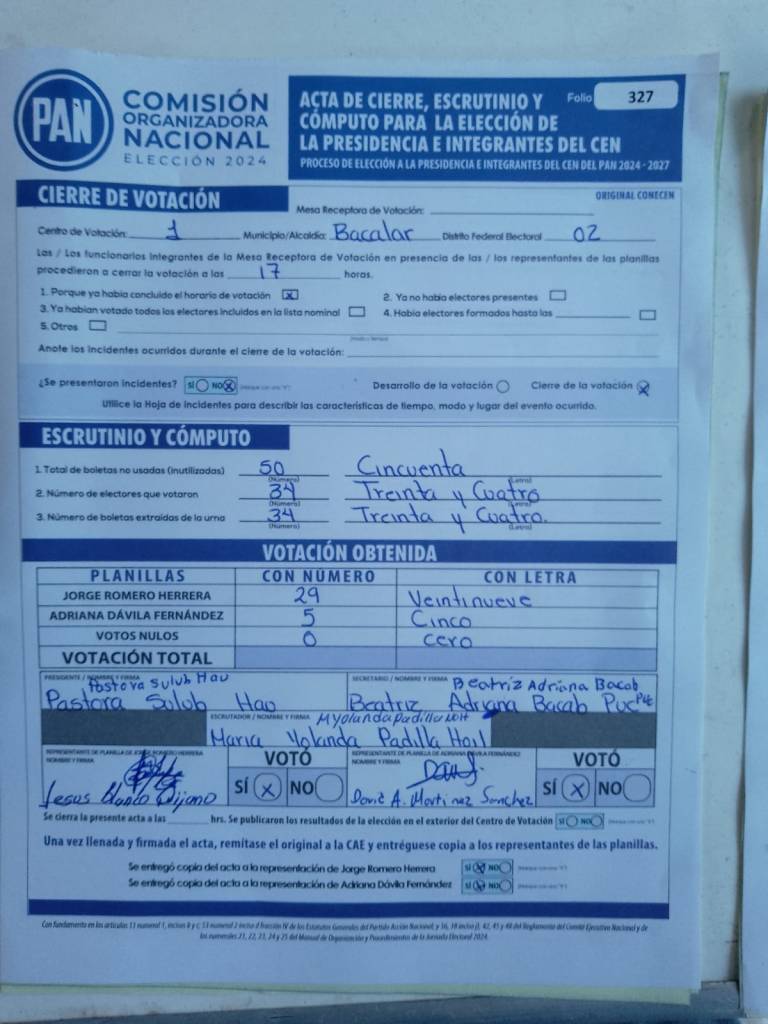 PAN
COMISIÓN
ORGANIZADORA
NACIONAL
ELECCIÓN 2024
ACTA DE CIERRE, ESCRUTINIO Y
CÓMPUTO PARA LA ELECCIÓN DE
LA PRESIDENCIA E INTEGRANTES DEL CEN
PROCESO DE ELECCIÓN A LA PRESIDENCIA E INTEGRANTES DEL CEN DEL PAN 2024 - 2027
Folio 327
CIERRE DE VOTACIÓN
ORIGINAL CONECEN
Mesa Receptora de Votación:
Centro de Votación: 1 Municipio/Alcaldía: Bacalar Distrito Federal Electoral 02
Las / Los funcionarios integrantes de la Mesa Receptora de Votación en presencia de las / los representantes de las planillas
procedieron a cerrar la votación a las 17 horas.
1. Porque ya había concluido el horario de votación X 2. Ya no había electores presentes
3. Ya habían votado todos los electores incluidos en la lista nominal 4. Había electores formados hasta las
5. Otros
Anote los incidentes ocurridos durante el cierre de la votación:
¿Se presentaron incidentes? SÍ NO X Desarrollo de la votación Cierre de la votación X
Utilice la Hoja de Incidentes para describir las características de tiempo, modo y lugar del evento ocurrido.
ESCRUTINIO Y CÓMPUTO
1. Total de boletas no usadas (inutilizadas) 50 Cincuenta
(Número) (Letra)
2. Número de electores que votaron 34 Treinta y Cuatro
(Número) (Letra)
3. Número de boletas extraídas de la urna 34 Treinta y Cuatro.
(Número) (Letra)
VOTACIÓN OBTENIDA
PLANILLAS CON NÚMERO CON LETRA
JORGE ROMERO HERRERA 29 Veintinueve
ADRIANA DÁVILA FERNÁNDEZ 5 Cinco
VOTOS NULOS 0 cero
VOTACIÓN TOTAL
PRESIDENTE / NOMBRE Y FIRMA Pastora Sulub Hau
Pastora Sulub Hau
SECRETARIO / NOMBRE Y FIRMA Beatriz Adriana Bacab
Beatriz Adriana Bacab Puc
ESCRUTADOR / NOMBRE Y FIRMA
Maria Yolanda Padilla
REPRESENTANTE DE PLANILLA DE JORGE ROMERO HERRERA
NOMBRE Y FIRMA
Jesus Blanco Quijano
VOTÓ
SÍ X NO
REPRESENTANTE DE PLANILLA DE ADRIANA DÁVILA FERNÁNDEZ
NOMBRE Y FIRMA
David A. Martinez Sanchez
VOTÓ
SÍ X NO
Se cierra la presente acta a las hrs. Se publicaron los resultados de la elección en el exterior del Centro de Votación SÍ NO
Una vez llenada y firmada el acta, remítase el original a la CAE y entréguese copia a los representantes de las planillas.
Se entregó copia del acta a la representación de Jorge Romero Herrera SÍ X NO
Se entregó copia del acta a la representación de Adriana Dávila Fernández SÍ X NO